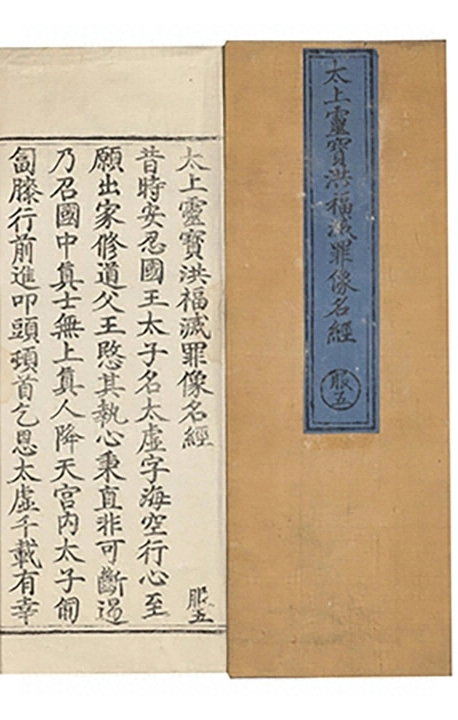 太上靈寶洪福滅罪像名經
服五
太上靈寶洪福滅罪像名經
服五
昔時安忍國王太子名太虛字海空行心至
願出家修道父王愍其執心秉直非可斷遏
乃召國中真士無上真人降天宮內太子匍
匐膝行前進叩頭頓首乞恩太虛千載有幸